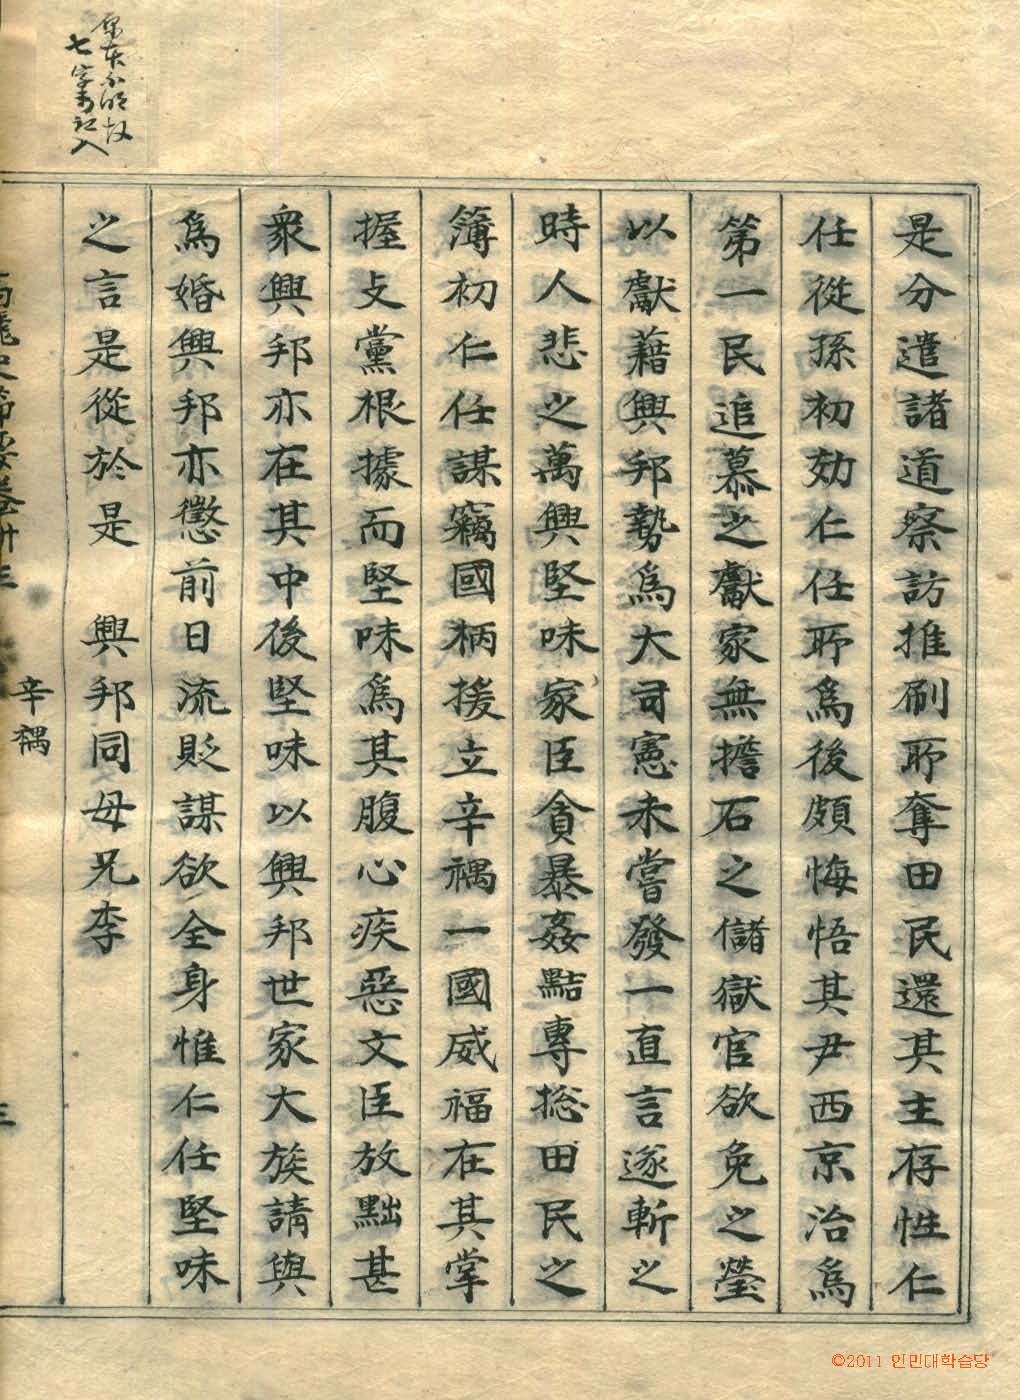 是分遣諸道察訪推刷所奪田民還其主存性仁
任從孫初効仁任所爲後頗悔悟其尹西京治爲
第一民追慕之獻家無擔石之儲獄官欲免之瑩
以獻藉興邦勢爲大司憲未嘗發一直言遂斬之
時人悲之萬興堅味家臣貪暴姦黠專摠田民之
簿初仁任謀竊國柄援立辛禑一國威福在其掌
握支黨根據而堅味爲其腹心疾惡文臣放黜甚
衆興邦亦在其中後堅味以興邦世家大族請與
爲婚興邦亦懲前日流貶謀欲全身惟仁任堅味
之言是從於是 興邦同母兄李
辛禑
三
七字
©2011 인민대학습당